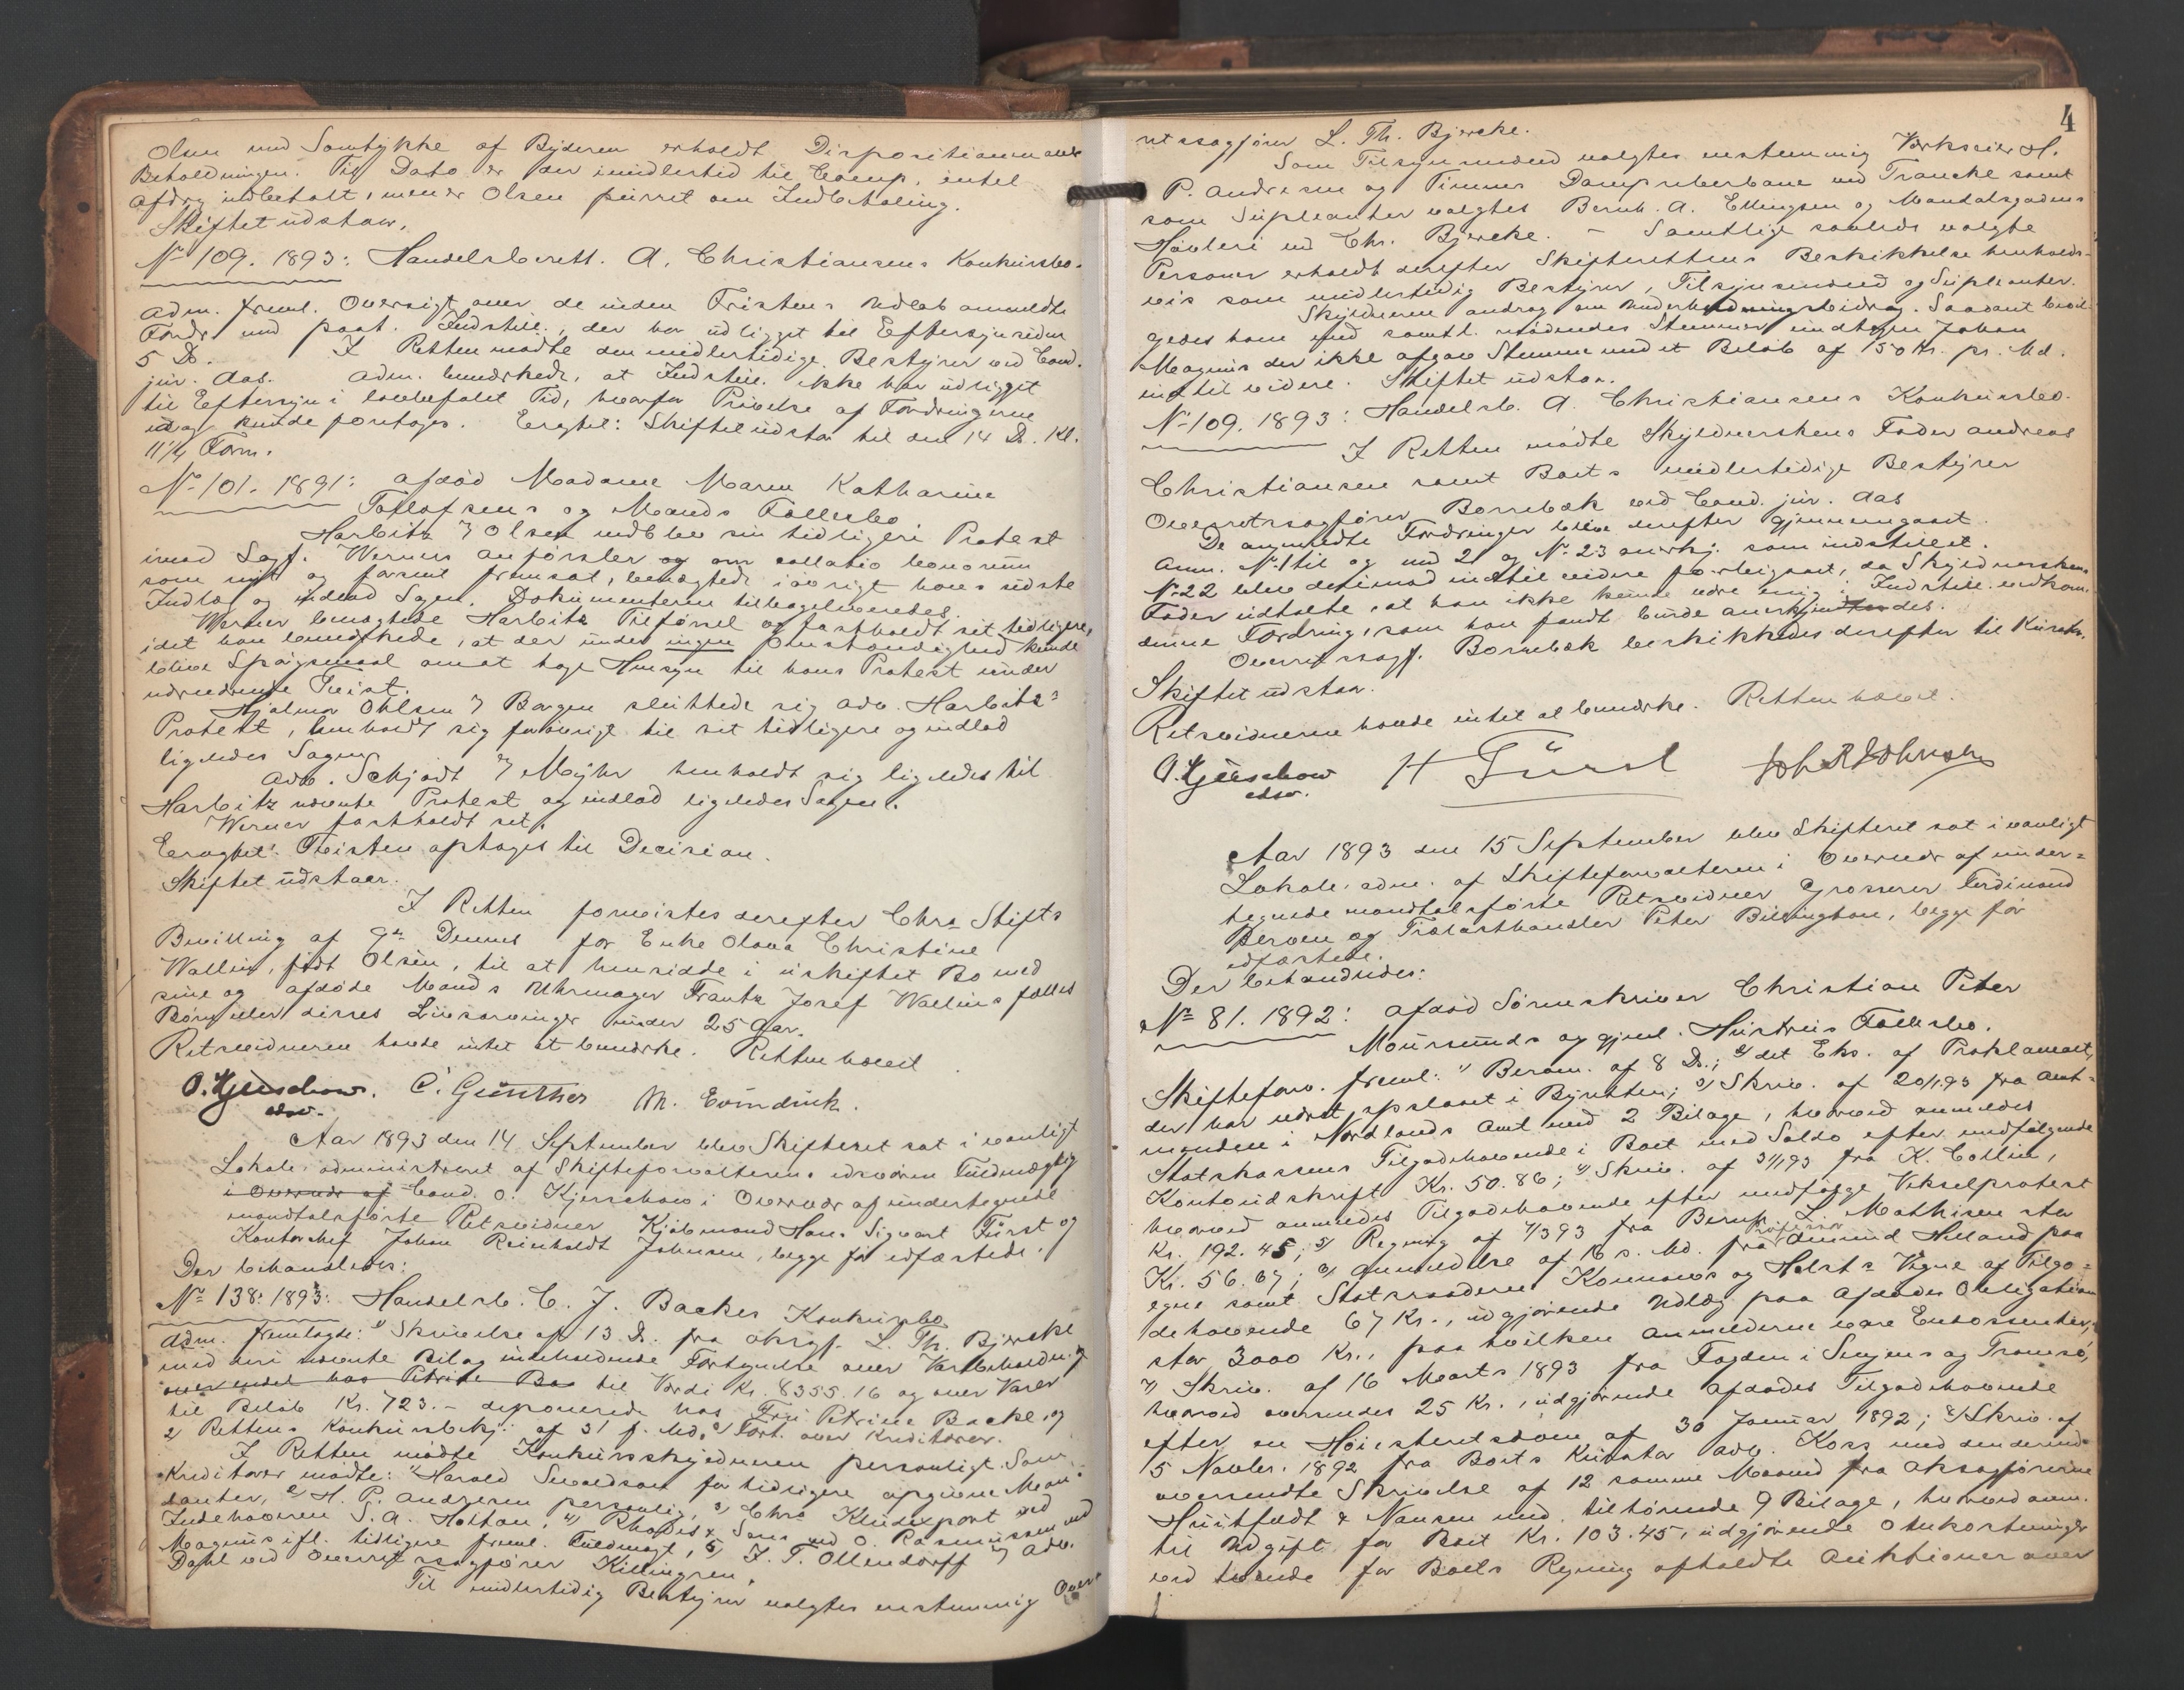 Olsen med Samtykke af Byderen erholdt Dispositionen over
Beholdningen. Til Dato er der imidlertid til Comp. intet
Afdrag indbetalt, men er Olsen purret om Indbetaling.
Skiftet udstaar.
No 109. 1893: Handelsberett. A. Christiansens Konkursbo.
Adm. freml. Oversigt over de inden Fristens Udløb anmeldte
Fordr. med paat. Indstill., der har udligget til Eftersyn siden
5 ds. I Retten mødte den midlertidige Bestyrer ved Cand.
jur. Aas. Adm. bemærkede, at Indstill. ikke har udligget
til Eftersyn i lovbefalet Tid, hvorfor Prøvelse af Fordringerne
ei kunde foretages. Eragtet: Skiftet udstaar til den 14 ds. Kl.
11 1/4 Form.
No 101. 1891: Afdød Madame Maren Katharine
Tollofsens og Mands Fællesbo.
Harbitz & Olsen vedblev sin tidligere Protest
imod Sagf. Werners Anførsler og om collatio bonorum
som nyt og forsent fremsat, benægtede iøvrigt hans sidste
Indlæg og indlod Sagen. Dokumenterne tilbageleveredes.
Werner benægtede Harbitz Tilførsel og fastholdt sit tidligere,
idet han bemærkede, at der under ingen Omstændighed kunde
blive Spørgsmaal om at tage Hensyn til hans Protest under
nærværende Tvist.
Hjalmar Ohlsen & Bergen sluttede sig Adv. Harbitz's
Protest, henholdt sig forøvrigt til sit tidligere og indlod
ligeledes Sagen.
Adv. Schjødt & Mejhr henholdt sig ligeledes til
Harbitz nævnte Protest og indlod ligeledes Sagen.
Werner fastholdt sit.
Eragtet: Tvisten optages til Decision.
Skiftet udstaar.
I Retten forevistes derefter Chra Stifts
Bevilling af 9de Dennes for Enke Olava Christine
Wallin, født Olsen, til at hensidde i uskiftet Bo med
sine og afdøde Mands Uhrmager Frantz Josef Wallins fælles
Børn eller disses Livsarvinger under 25 Aar.
Retsvidnerne havde intet at bemærke. Retten hævet
O. Kjerschow. C. Günther M. Evindrük.
edsv.
Aar 1893 den 14 September blev Skifteret sat i vanligt
Lokale, administreret af Skifteforvalterens edsvorne Fuldmægtig
i Overvær af Cand. O. Kjerschow i Overvær af undertegnede
mandtalsførte Retsvidner Kjøbmand Hans Sigvart Fürst og
Kontorchef Johan Reinholdt Johnsen, begge før edfæstede.
Der behandledes:
No 138. 1893: Handelsb. C. J. Backes Konkursbo
Adm. fremlagde: 1) Skrivelse af 13 ds. fra Oksgf. L. Th. Bjercke
med deri nævnte Bilag indeholdende Fortegnelse over Varebeholdn. og
over endel hos Petrine Ba til Værdi Kr. 8355.16 og over Varer
til Beløb Kr. 723.- deponerede hos Fru Petrine Backe, og
2) Rettens Konkursbekj. af 31 f. Md. 3) Fort. over Kreditorer.
I Retten mødte Konkursskyldneren personligt. Som
Kreditorer mødte: 1) Harald Svendsen for tidligere opgivne Man-
danter, 2) H. P. Andresen personlig, 3) Chra Kludexport ved
Indehaveren S. A. Holtan, 4) Rhodes & Sons ved O. Rasmussen ved
Magnus ifl. tidligere freml. Fuldmagt, 5) J. T. Ollendorff & Adv.
Dahl ved Overretssagfører Killingren.
Til midlertidig Bestyrer valgtes enstemmig Over-
4
retssagfører L. Th. Bjercke.
Som Tilsynsmænd valgtes enstemmig Værkseier H.
P. Andresen og Timmes Dampveberbane ved Trancke samt
som Supleanter valgtes Bernh. A. Ellingsen og Mandalsgadens
Høvleri ved Chr. Bjercke. - Samtlige saaledes valgte
Personer erholdt derefter Skifterettens Beskikkelse henholds-
vis som midlertidig Bestyrer, Tilsynsmænd og Supleanter.
Skyldneren androg om Underholdningsbidrag. Saadant bevil-
gedes ham med samtl. mødendes Stemmer undtagen Johan
Magnus der ikke afgav Stemme med et Beløb af 150 Kr. pr. Md.
indtil videre. Skiftet udstaar.
No 109. 1893: Handelsb. A. Christiansens Konkursbo.
I Retten mødte Skyldnerskens Fader Andreas
Christiansen samt Boets midlertidige Bestyrer
Overretssagfører Bornebæk ved Cand. jur. Aas
De anmeldte Fordringer blev derefter gjennemgaaet.
Anm. No 1 til og med 21 og No 23 anerkj. som indstillet.
No 22 blev derimod indtil videre forbigaaet, da Skyldnerskens
Fader udtalte, at han ikke kunde være enig i Indstill. vedkom.
denne Fordring, som han fandt burde anerkjendes.
Overretssagf. Bornebæk beskikkedes derefter til Kurator.
Skiftet udstaar.
Retsvidnerne havde intet at bemærke. Retten hævet.
O. Kjerschow H Fürst Joh R Johnsen
edsv.
Aar 1893 den 15 September blev Skifteret sat i vanligt
Lokale, adm. af Skifteforvalteren i Overvær af under-
tegnede mandtalsførte Retsvidner Grosserer Ferdinand
Perven og Trælasthandler Peter Billington, begge før
edfæstede.
Der behandledes:
No 81. 1892: Afdød Sorenskriver Christian Peter
Moursunds og gjenl. Hustrus Fællesbo.
Skifteforv. freml: 1) Beram. af 8 ds.; 2) det Eks. af Proklamaet,
der har været opslaaet i Byretten; 3) Skriv. af 20/1 93 fra Amt-
manden i Nordlands Amt med 2 Bilage, hvorved anmeldes
Statskassens Tilgodehavende i Boet med Saldo efter medfølgende
Kontoudskrift Kr. 50.86; 4) Skriv. af 31/1 93 fra K. Collin,
hvorved anmeldes Tilgodehavende efter medfølge Vekselprotest
Kr. 192.45; 5) Regning af 4/3 93 fra Bernh. L. Mathisen stor
Kr. 56.67; 6) Anmeldelse af 16 s. Md. fra Professor Amund Helland paa
egne samt Statsraaderne Konows og Holsts Vegne af Tilgo-
dehavende 67 Kr., udgjørende Udlæg paa Afdødes Obligation
stor 3000 Kr., paa hvilken Anmelderne vare Endossenter;
7) Skriv. af 16 Marts 1893 fra Fogden i Senjens og Tromsø,
hvorved oversendes 25 Kr., udgjørende Afdødes Tilgodehavende
efter en Høiesteretsdom af 30 Januar 1892; 8) Skriv. af
5 Novbr. 1892 fra Boets Kurator Adv. Koss med dermed
oversendte Skrivelse af 12 samme Maaned fra Oksagførerne
Huitfeldt & Nansen med tilhørende 9 Bilage, hvorved anm.
til Udgift for Boet Kr. 103.45, udgjørende Omkostninger
ved tvende for Boets Regning afholdte Auktioner over